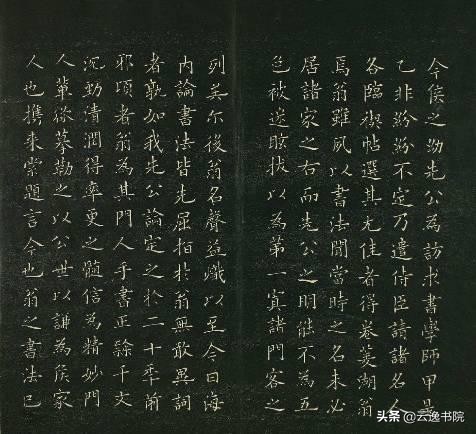 今侯之幼先公為訪求書學師甲是
乙非紛紛不定乃遣侍臣請諸名人
各臨禊帖選其尤佳者得卷菱湖翁
焉翁雖夙以書法聞當時之名未必
居諸家之右而先公之明能不為五
色被迷眩拔以為第一寘諸門客之
列矣尔後翁名聲益熾以至今日海
内論書法皆先屈指於翁無敢異詞
者歟如我先公論定之於二十季前
邪頃者翁為其門人手書正隸千文
沉勁清潤得率更之髓信為精妙門
人輩欲摹勒之以公世以謙為侯家
人也携来索題言今也翁之書法已
头条 @云逸书院